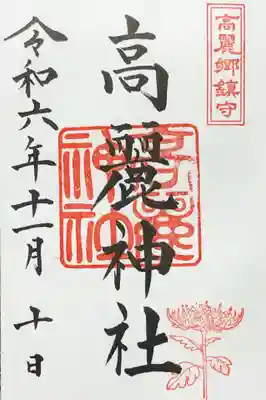 高麗郷鎮守
高麗神社
高麗神社
令和六年十一月十日